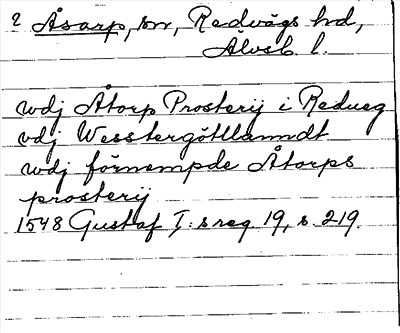 2 Åsarp, sn, Redvägs hd,
Älvsb. l.
wdj Åtorp Prosterij i Redueg
vdj Wesstergöttlanndt
wdj förnempde Åtorps
prosterij
1548 Gustaf I: s reg 19, s. 219.